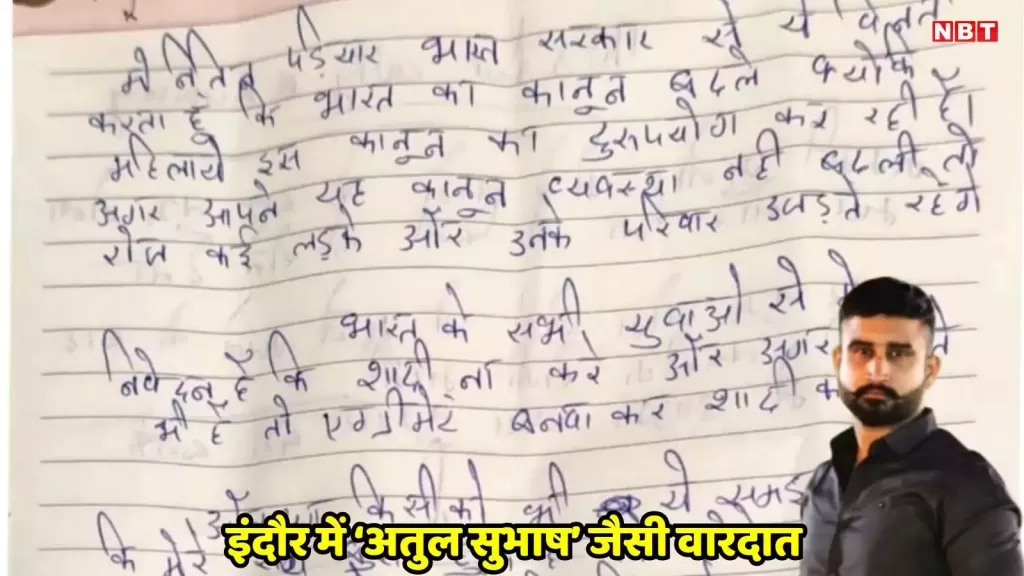 NBT
मे नितिन पड़ियार भारत सरकार से ये वेनत
करता हुँ कि भारत का कानून बदले क्योकि
महिलाये इस कानून का दुरूपयोग कर रही है।
अगर आपने यह कानून व्यवस्था नही बदली तो
रोज कई लड़के ओर उनके परिवार उजड़ते रहेगे
भारत के सभी युवाओ से
निवेदन है कि शादी ना करे ओर अगर
भी है तो एग्रीमेंट बनवा कर शादी
किसी को भी ये
कि मेरे
इंदौर में ‘अतुल सुभाष’ जैसी वारदात